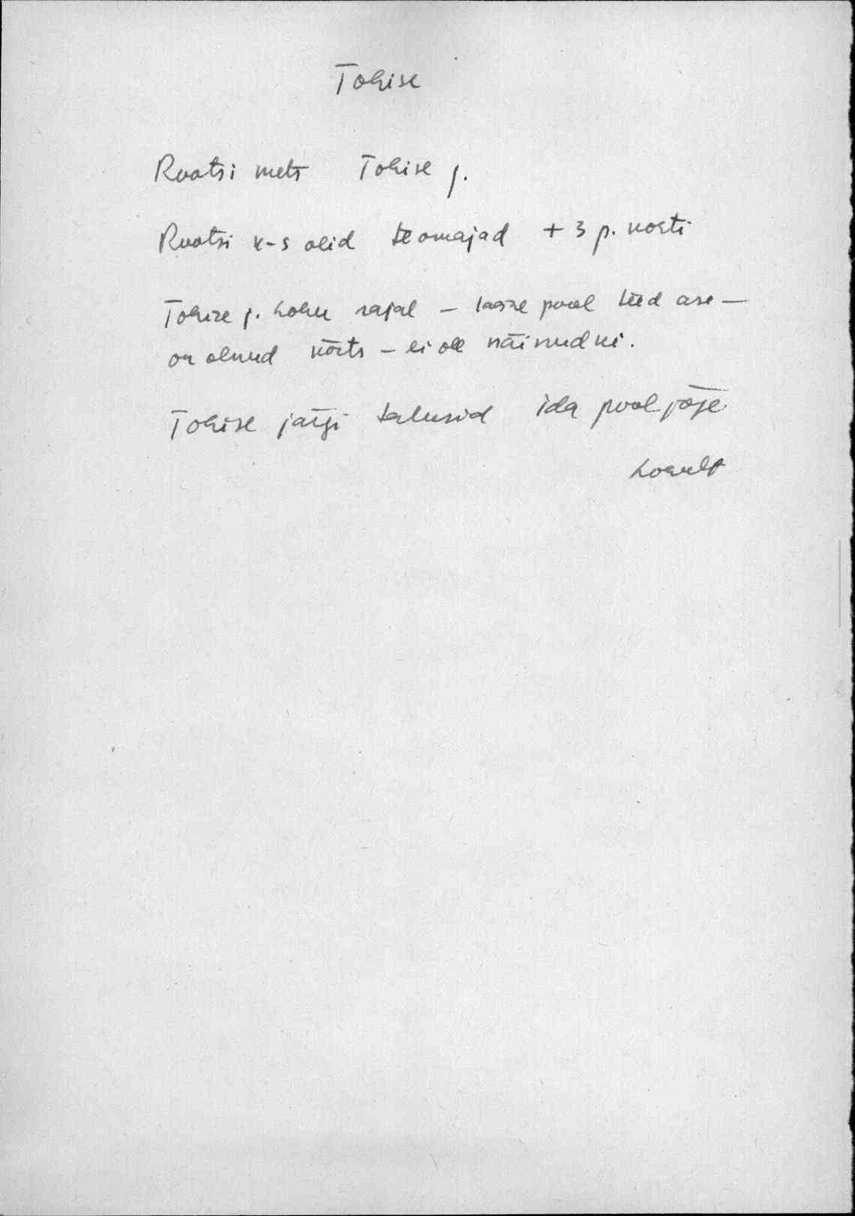 Tohise
Rootsi mets Tohise j.
Rootsi k-s olid teomajad + 3 p. kosti
Tohise j. kohu rajal – teine pool teed ase –
on olnud kõrts – ei ole näinudki.
Tohise järgi talusid ida pool jõge